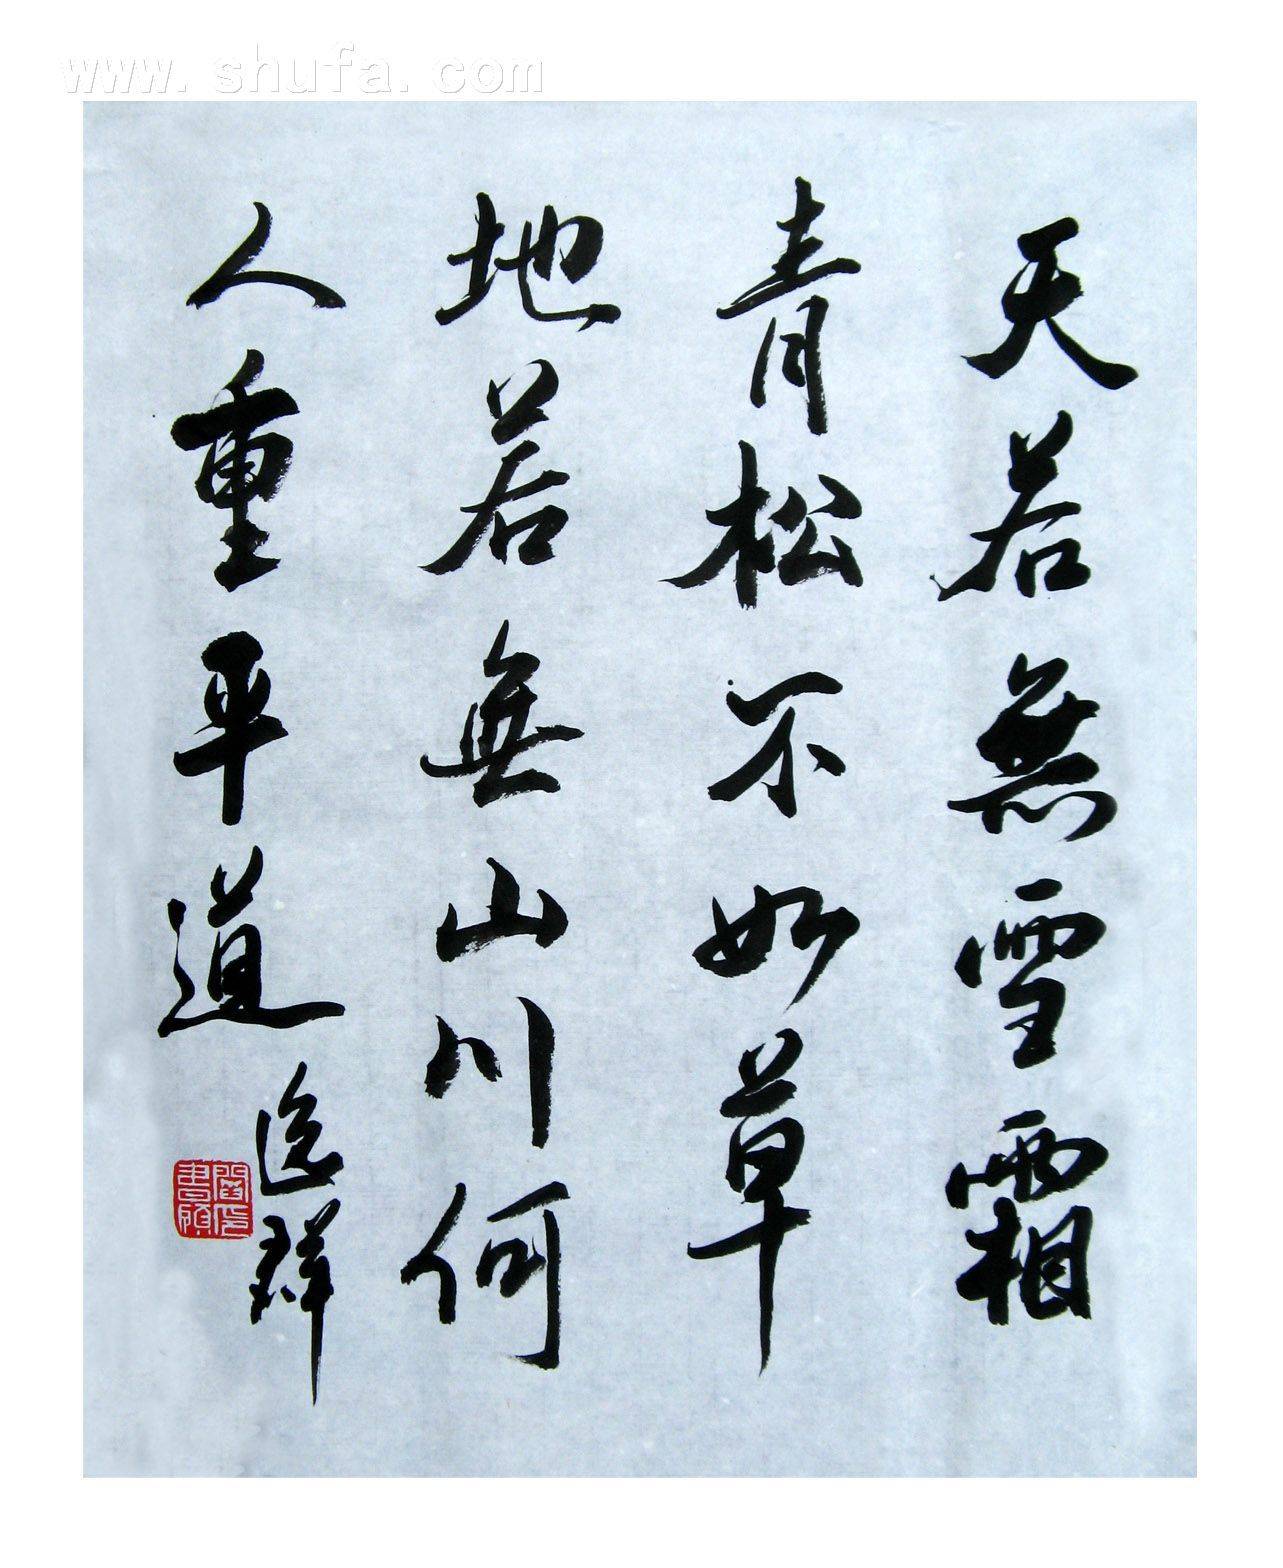 www.shufa.com
天若無雪霜
青松不如草
地若無山川何
人重平道